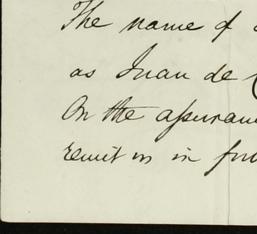 The name of
as Juan de
On the assuran
remit us in